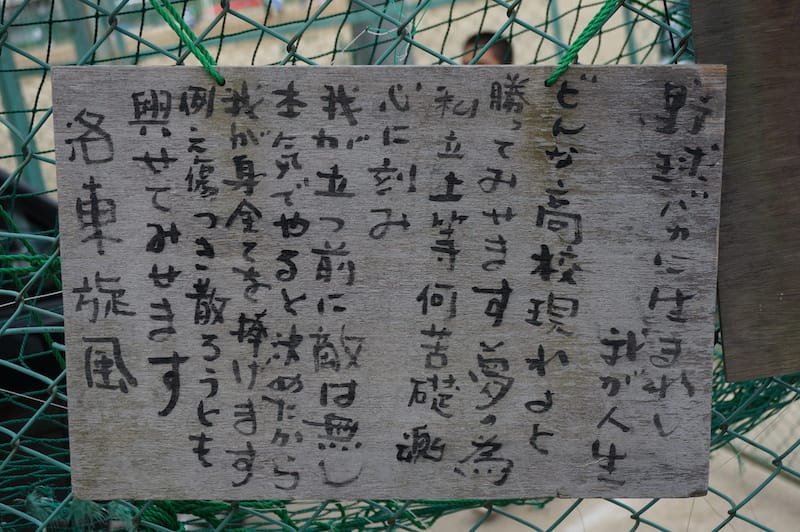 野球バカに生まれし
我が人生
どんな高校現れよと
勝ってみせます夢の為
私立上等何苦礎魂
心に刻み
我が立つ前に敵は無し
本気でやると決めたから
我が身全てを捧げます
例え傷つき散ろうとも
興せてみせます
洛東旋風